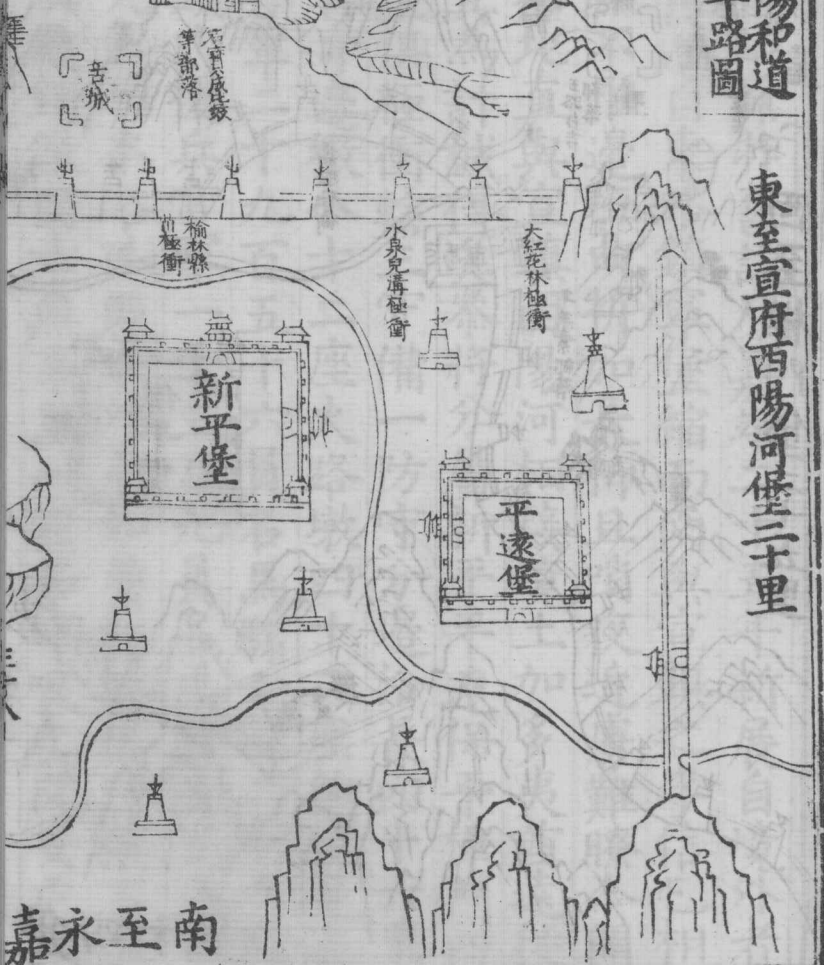 陽和道
平路圖
東至宣府西陽河堡二十里
等部落
古城
大紅花林極衝
水泉兒溝極衝
榆林縣
川極衝
新平堡
平遠堡
南至永嘉